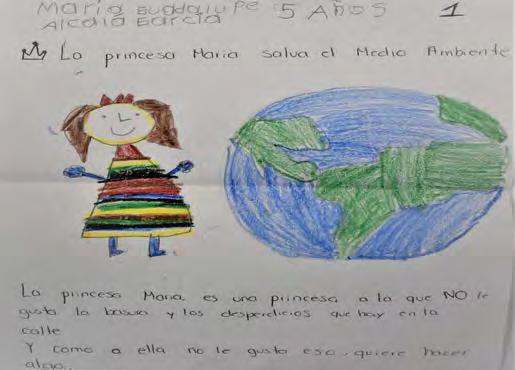 María Guadalupe 5 AÑOS 1
Alcalá García
La princesa María salva el Medio Ambiente
La princesa María es una princesa a la que NO le
gusta la basura y los desperdicios que hay en la
calle
Y como a ella no le gusta eso, quiere hacer
algo..